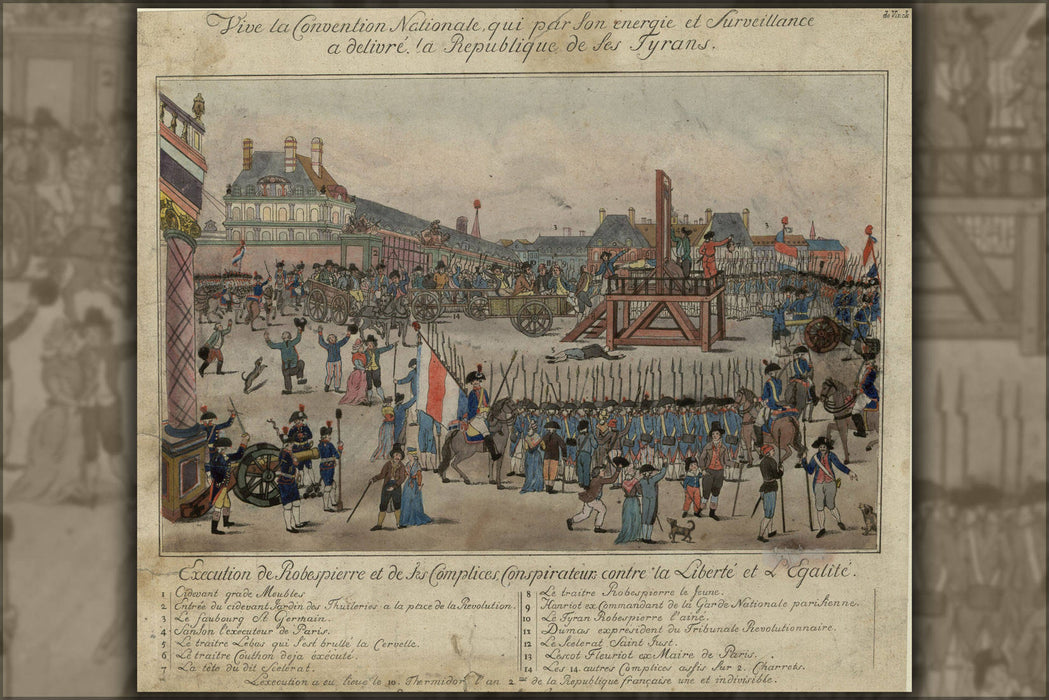 de Vinck
Vive la Convention Nationale, qui par son energie et Surveillance
a delivré la Republique de Ses Tyrans.
Execution de Robespierre et de Ses Complices, Conspirateurs contre la Liberté et L'Egalité.
1 Cidevant grade Meubles
2 Entrée du cidevant Jardin des Thuilleries a la place de la Revolution.
3 Le faubourg St Germain.
4 Sanson l'executeur de Paris.
5 Le traitre Lebas qui s'est brullé la Cervelle.
6 Le traitre Couthon deja éxécuté.
7 La tête du dit Scelerat.
8 Le traitre Robespierre le Jeune.
9 Hanriot ex Commandant de la Garde Nationale parisienne.
10 Le Tyran Robespierre l'ainé.
11 Dumas exprésident du Tribunale Revolutionnaire.
12 Le Scelerat Saint Just.
13 Lescot Fleuriot ex Maire de Paris.
14 Les 14 autres Complices assis sur 2 Charrets.
L'execution a eu lieue le 10 Thermidor l'an 2me de la Republique française une et indivisible.